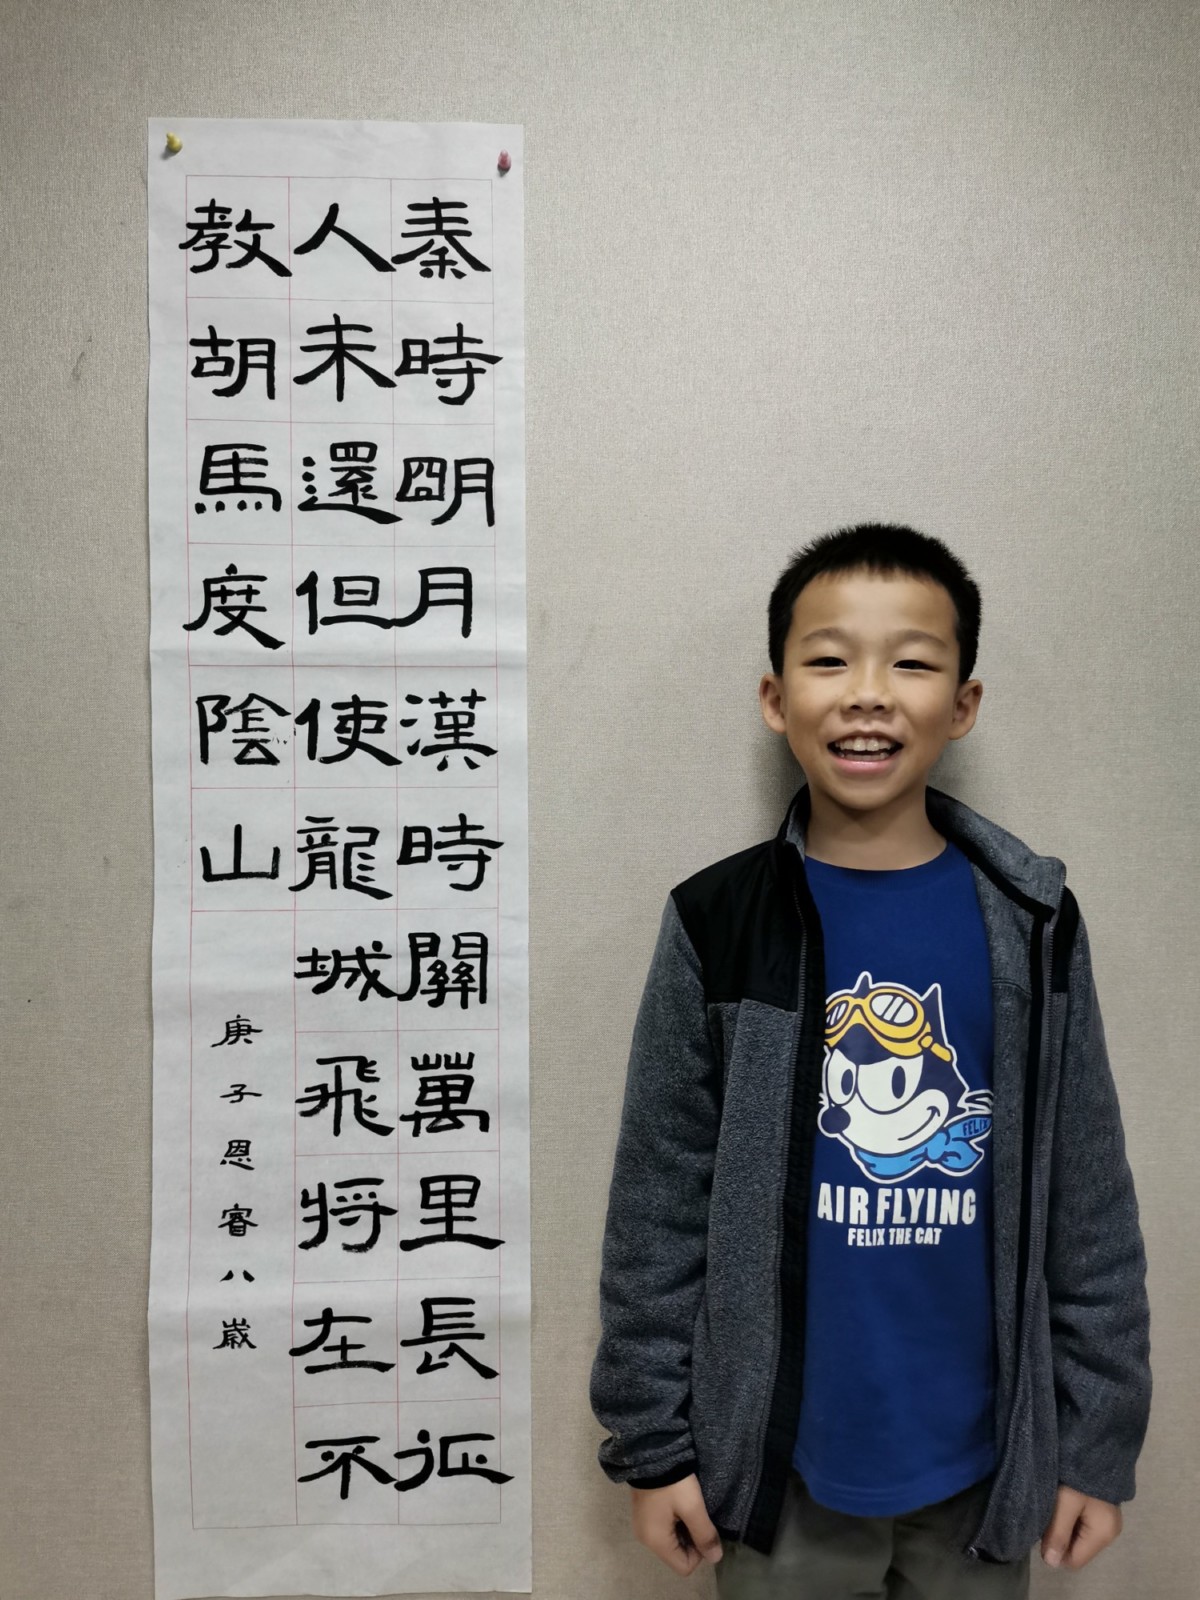 秦時明月漢時關萬里長征
人未還但使龍城飛將在不
教胡馬度陰山
庚子恩睿八歲
FELIX
AIR FLYING
FELIX THE CAT